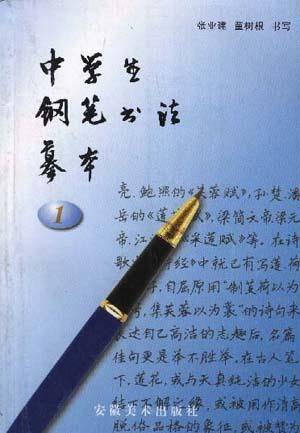 张业建 董树根 书写
中学生
钢笔书法
摹本
1
亮、鲍照的《芙蓉赋》,孙楚、潘
岳的《莲 赋》,梁简文帝梁元
帝、江 《采莲赋》等。在诗
歌 经》中就已有写莲荷
自屈原用“制芰荷以为
,集芙蓉以为裳”的诗句来
表达自己高洁的志趣后,名篇
佳句更是举不胜举。在古人笔
下,莲花,或与天真纯洁的少女
结下不解之缘,或被用作清高
脱俗品格的象征,或被赞为
安徽美术出版社